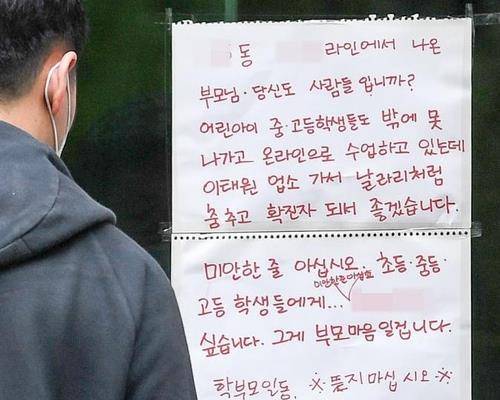 동 라인에서 나온
부모님. 당신도 사람들 입니까?
어린아이 중·고등학생들도 밖에 못
나가고 온라인으로 수업하고 있는데
이태원 업소 가서 날라리처럼
춤추고 확진자 되서 좋겠습니다.
미안한 줄 아십시오. 초등·중등·
고등 학생들에게...
싶습니다. 그게 부모마음일겁니다.
학부모일동. ※ 뜯지마십시오 ※